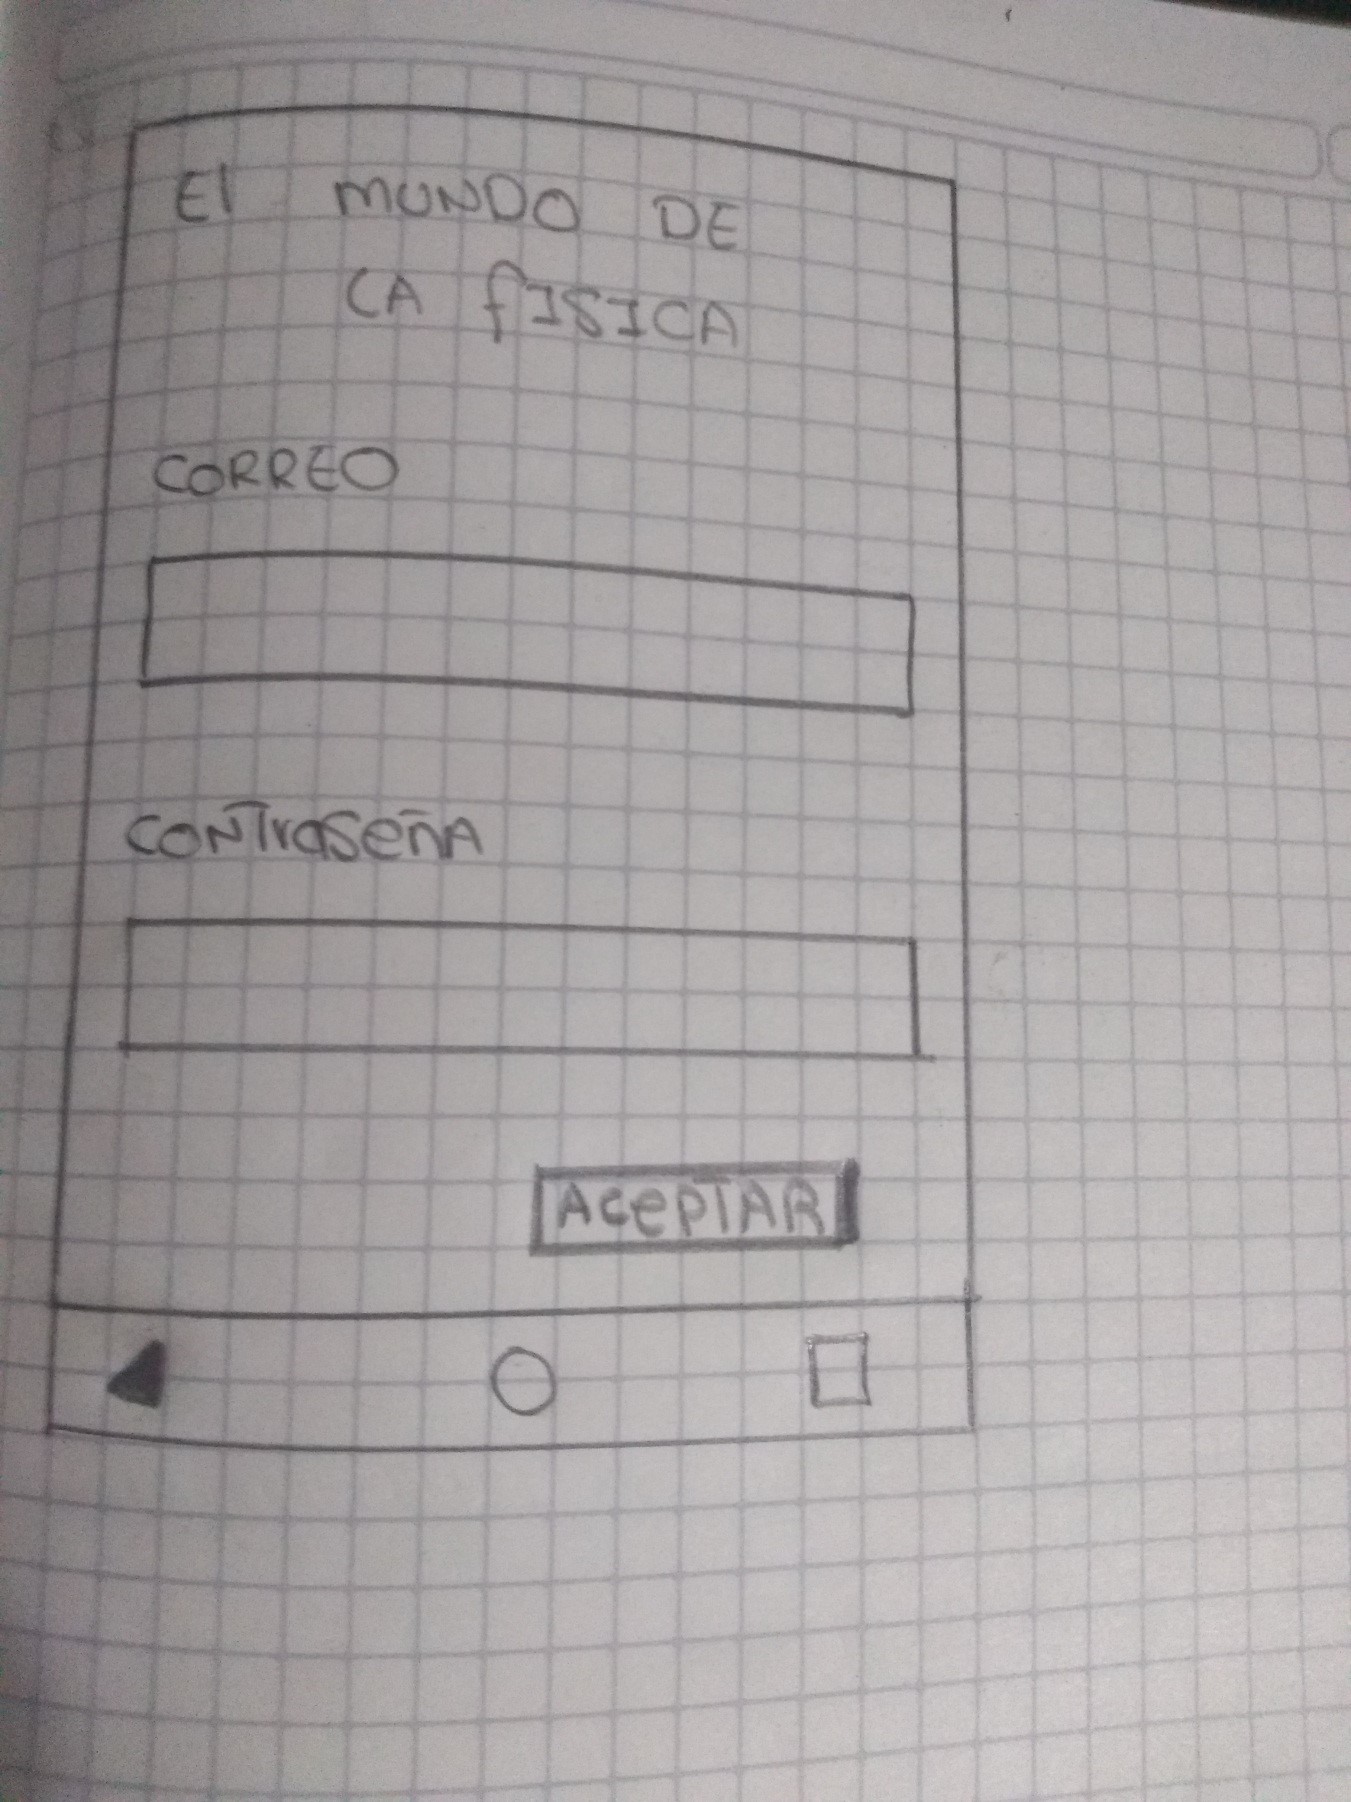 El MUNDO DE
LA fISICA
CORREO
CONTraSeñA
ACePTAR